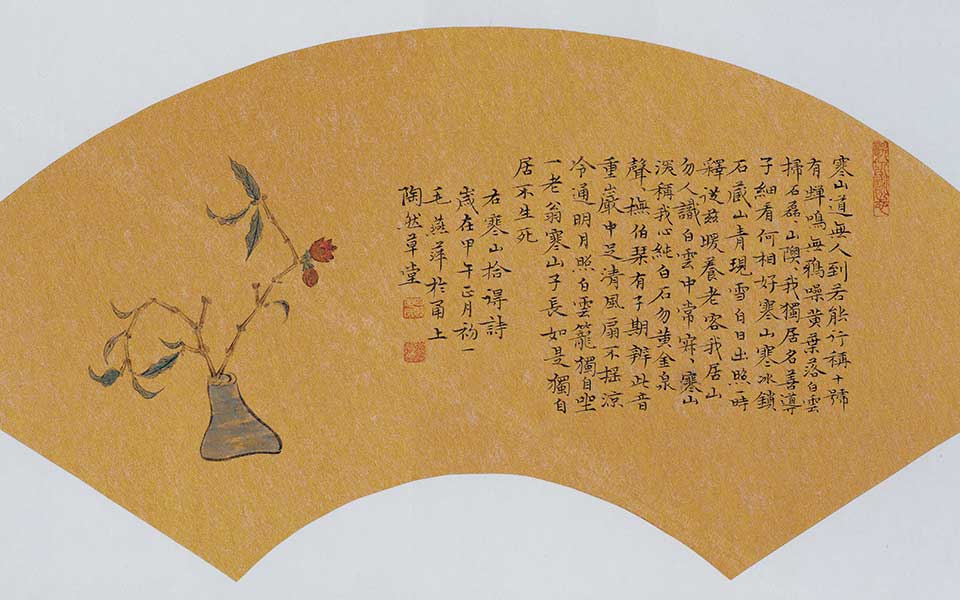 寒山道無人到若能行稱十號
有蟬鳴無鴉噪黃葉落白雲
掃石磊、山隩、我獨居名善導
子細看何相好寒山寒冰鎖
石藏山青現雪白日出照一時
釋從茲暖養老客我居山
勿人識白雲中常寂、寒山
深稱我心純白石勿黃金泉
聲、撫伯琴有子期辨此音
重巖中足清風扇不搖涼
冷通明月照白雲籠獨自坐
一老翁寒山子長如是獨自
居不生死
右寒山拾得詩
歲在甲午正月初一
毛燕萍於甬上
陶然草堂